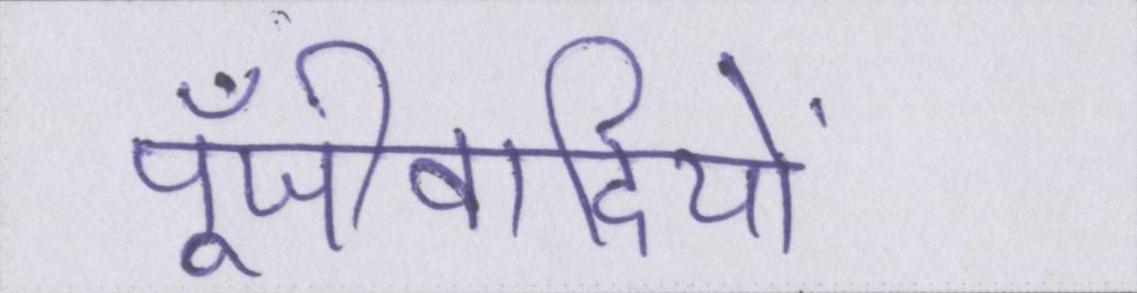 पूँजीवादियों